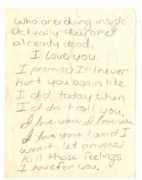 who are dying inside
Actually they're
already dead.
I love you.
I promise I'll never
hurt you again like
I did today when
I didn't call you,
I love you I love you
I love you! and I
won't let anyone
kill those feelings
I have for you,